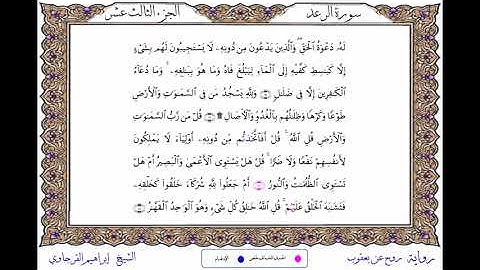 سورة الرعد
الجزء الثالث عشر
لَهُۥ دَعْوَةُ ٱلْحَقِّ وَٱلَّذِينَ يَدْعُونَ مِن دُونِهِۦ لَا يَسْتَجِيبُونَ لَهُم بِشَىْءٍ
إِلَّا كَبَٰسِطِ كَفَّيْهِ إِلَى ٱلْمَآءِ لِيَبْلُغَ فَاهُ وَمَا هُوَ بِبَٰلِغِهِۦ ۚ وَمَا دُعَآءُ
ٱلْكَٰفِرِينَ إِلَّا فِى ضَلَٰلٍ وَلِلَّهِ يَسْجُدُ مَن فِى ٱلسَّمَٰوَٰتِ وَٱلْأَرْضِ
طَوْعًا وَكَرْهًا وَظِلَٰلُهُم بِٱلْغُدُوِّ وَٱلْءَاصَالِ ۩ قُلْ مَن رَّبُّ ٱلسَّمَٰوَٰتِ
وَٱلْأَرْضِ قُلِ ٱللَّهُ ۚ قُلْ أَفَٱتَّخَذتُّم مِّن دُونِهِۦٓ أَوْلِيَآءَ لَا يَمْلِكُونَ
لِأَنفُسِهِمْ نَفْعًا وَلَا ضَرًّا ۚ قُلْ هَلْ يَسْتَوِى ٱلْأَعْمَىٰ وَٱلْبَصِيرُ أَمْ هَلْ
تَسْتَوِى ٱلظُّلُمَٰتُ وَٱلنُّورُ أَمْ جَعَلُوا۟ لِلَّهِ شُرَكَآءَ خَلَقُوا۟ كَخَلْقِهِۦ
فَتَشَٰبَهَ ٱلْخَلْقُ عَلَيْهِمْ ۚ قُلِ ٱللَّهُ خَٰلِقُ كُلِّ شَىْءٍ وَهُوَ ٱلْوَٰحِدُ ٱلْقَهَّٰرُ
رواية روح عن يعقوب
الإدغام
الشيخ إبراهيم القرجاوي